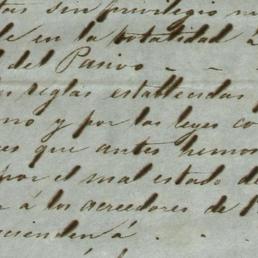 tos sin privilegio
le en la totalidad á
del Pasivo - -
reglas establecidas
no y por las leyes co
es que antes hemos
por el mal estado de
r á los acreedores de
scienden á